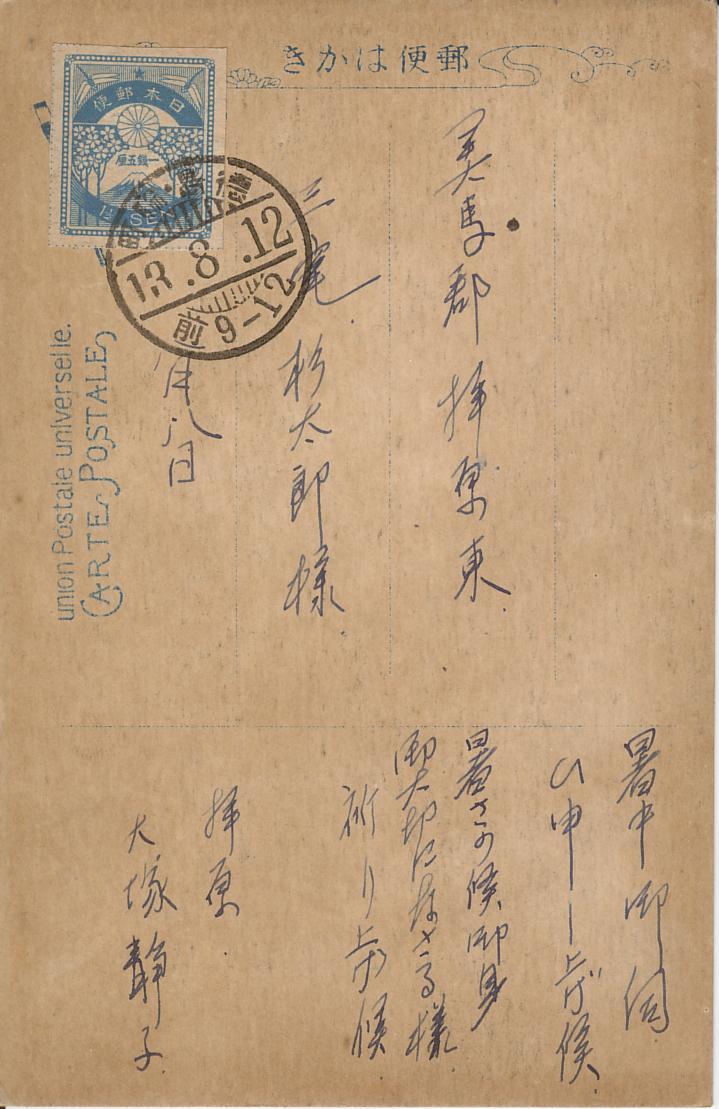 きかは便郵
日本郵便
一銭五厘
1½ SEN
13.8.12
前9-12
union Postale universelle.
CARTE POSTALE
美馬郡拝原東
三宅杉太郎様
月八日
暑中御伺
ひ申し上げ候
暑さの候御身
御大切になさる様
祈り上げ候
拝原
大塚静子